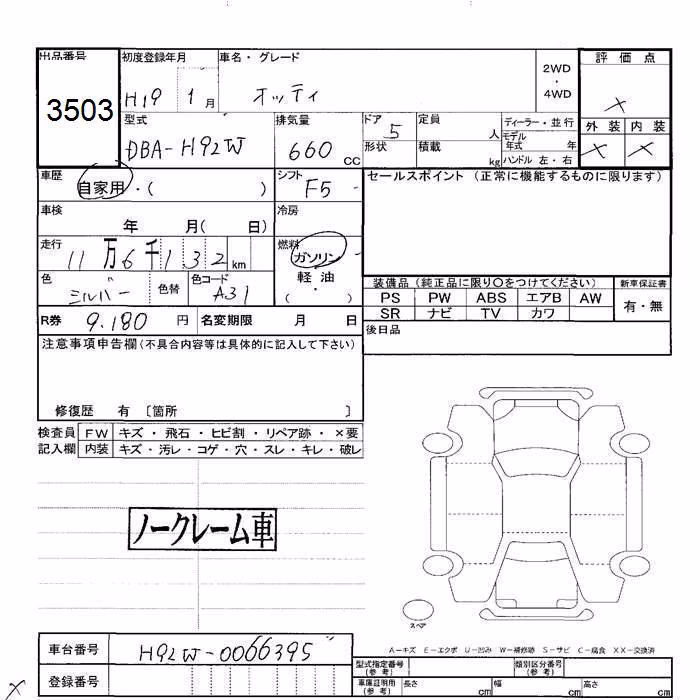 出品番号 初度登録年月 車名・グレード 2WD・4WD 評価点
3503 H19 1月 オッティ ×
型式 排気量 ドア 定員 ディーラー・並行 外装 内装
DBA-H92W 660 CC 5 人 モデル年式 年 × ×
形状 積載 kg ハンドル 左・右
車歴 シフト セールスポイント (正常に機能するものに限ります)
自家用・( ) F5
車検 冷房
年 月( 日)
走行 燃料
11万6千132 km ガソリン・軽油・( )
色 色替 色コード
シルバー A31
装備品 (純正品に限り〇をつけてください) 新車保証書
PS PW ABS エアB AW 有・無
SR ナビ TV カワ
R券 9.180 円 名変期限 月 日
後日品
注意事項申告欄(不具合内容等は具体的に記入して下さい)
修復歴 有 〔箇所 〕
検査員 FW キズ・飛石・ヒビ割・リペア跡・×要
記入欄 内装 キズ・汚レ・コゲ・穴・スレ・キレ・破レ
ノークレーム車
スペア
車台番号 H92W-0066395
A-キズ E-エクボ U-凹み W-補修跡 S-サビ C-腐食 XX-交換済
型式指定番号(参考) 類別区分番号(参考)
登録番号
車庫証明用(参考) 長さ cm 幅 cm 高さ cm
×